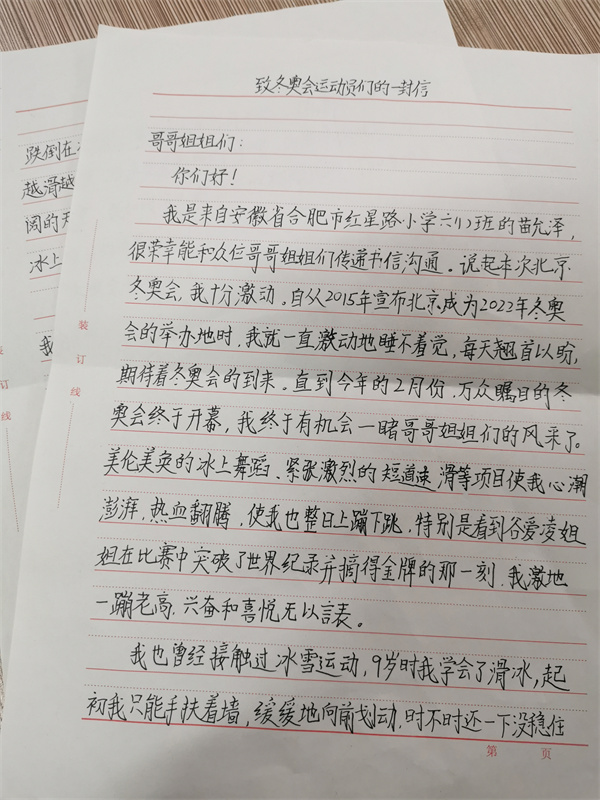 致冬奥会运动员们的一封信
哥哥姐姐们：
你们好！
我是来自安徽省合肥市红星路小学六(1)班的苗允泽，
很荣幸能和众位哥哥姐姐们传递书信沟通。说起本次北京
冬奥会，我十分激动。自从2015年宣布北京成为2022年冬奥
会的举办地时，我就一直激动地睡不着觉，每天翘首以盼，
期待着冬奥会的到来。直到今年的2月份，万众瞩目的冬
奥会终于开幕，我终于有机会一睹哥哥姐姐们的风采了。
美伦美奂的冰上舞蹈、紧张激烈的短道速滑等项目使我心潮
澎湃，热血翻腾，使我也整日上蹦下跳，特别是看到谷爱凌姐
姐在比赛中突破了世界纪录并摘得金牌的那一刻，我激地
一蹦老高，兴奋和喜悦无以言表。
我也曾经接触过冰雪运动，9岁时我学会了滑冰，起
初我只能手扶着墙，缓缓地向前划动，时不时还一下没稳住
第 页
装订线
跌倒在
越滑越
阔的天
冰上
我
装订线